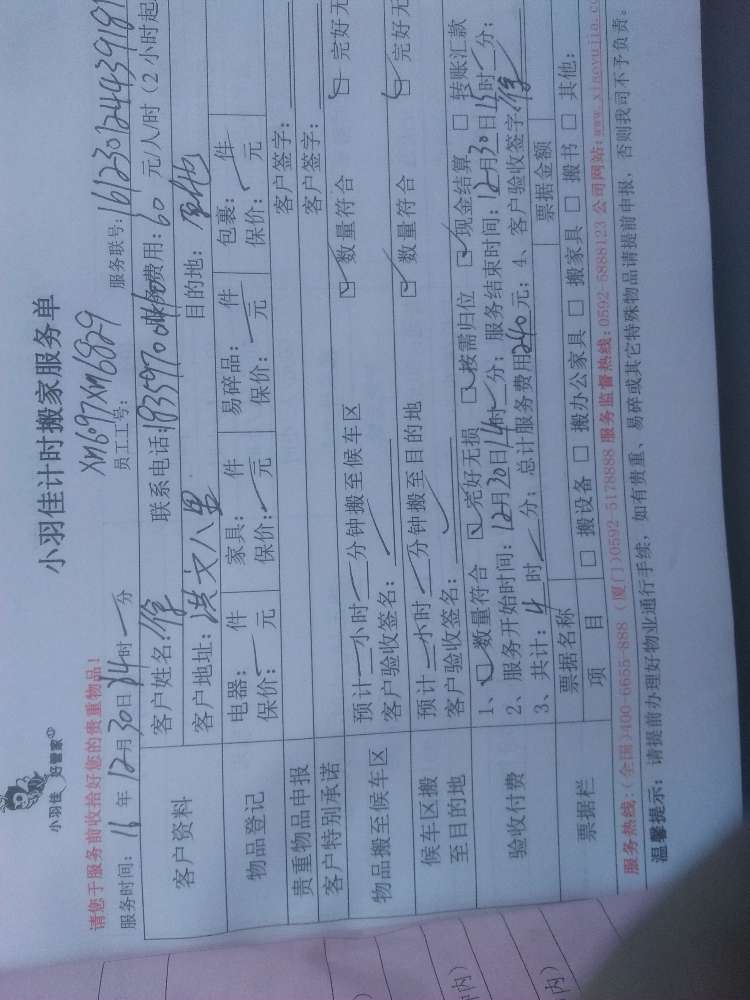 小羽佳 好管家
小羽佳计时搬家服务单
请您于服务前收拾好您的贵重物品!
员工工号: XM6097XM6829
服务时间: 16 年 12 月 30 日 14 时 — 分 服务联号: 1612301244439181
客户资料
客户姓名: 联系电话: 服务费用: 60 元/人/时 (2小时起
客户地址: 洪文八里 目的地:
物品登记
电器: 一 件 家具: 件 易碎品: 件 包裹: 件
保价: 一 元 保价: 一 元 保价: 一 元 保价: 一 元
贵重物品申报 客户签字:
客户特别承诺 客户签字:
物品搬至候车区
预计 一 小时 一 分钟搬至候车区 数量符合 完好无
客户验收签名:
候车区搬至目的地
预计 一 小时 一 分钟搬至目的地 数量符合 完好无
客户验收签名:
验收付费
1、 数量符合 完好无损 按需归位 现金结算 转账汇款
2、服务开始时间: 12月30日14时 一 分; 服务结束时间: 12月30日 时 一 分;
3、共计: 4 时 一 分; 总计服务费用240元; 4、客户验收签字:
票据栏
票据名称 票据金额
项 目 搬设备 搬办公家具 搬家具 搬书 其他:
服务热线: (全国)400-6655-888 (厦门)0592-5178888 服务监督热线: 0592-5888123 公司网站: www.xiaoyujia.co
温馨提示: 请提前办理好物业通行手续, 如有贵重、易碎或其它特殊物品请提前申报, 否则我司不予负责。
内)
内)